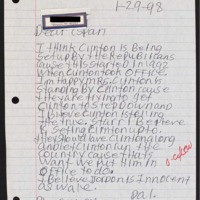 1-29-98
Dear Cspan
I think Clinton is Being
set up by the Republicans
cause this started in 1992
when Clinton took office.
I'm Happy Mrs. Clinton is
standing By Clinton cause
they are trying to get
Clinton to step Down and
I Believe Clinton is telling
the true. Starr I Believe
is setting Clinton up to.
Clinton along
and let Clinton run the
country cause that's
want we put Him in
office to do.
I believe Jordon is Innocent
as wa he.
Pal.